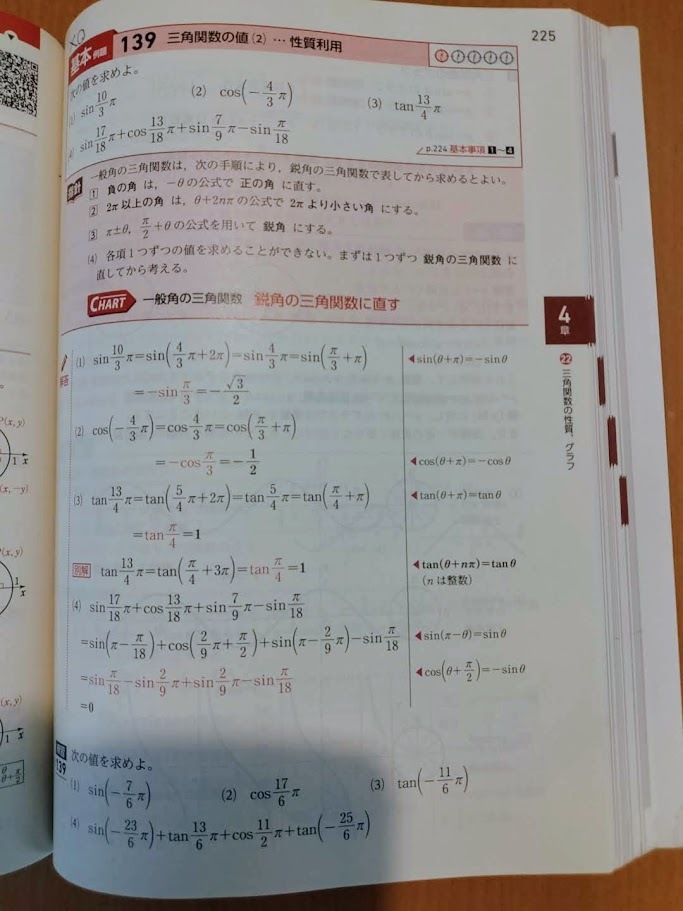 225
基本 例題 139 三角関数の値(2) … 性質利用
次の値を求めよ。
(1) sin 10/3 π (2) cos(−4/3 π) (3) tan 13/4 π
(4) sin 17/18 π+cos 13/18 π+sin 7/9 π−sin π/18
p.224 基本事項 1〜4
指針 一般角の三角関数は，次の手順により，鋭角の三角関数で表してから求めるとよい。
1 負の角 は，−θの公式で 正の角 に直す。
2 2π以上の角 は，θ+2nπの公式で 2πより小さい角 にする。
3 π±θ, π/2+θ の公式を用いて 鋭角 にする。
(4) 各項1つずつの値を求めることができない。まずは1つずつ 鋭角の三角関数 に
直してから考える。
CHART 一般角の三角関数 鋭角の三角関数に直す
解答
(1) sin 10/3 π=sin(4/3 π+2π)=sin 4/3 π=sin(π/3+π) ◀sin(θ+π)=−sinθ
=−sin π/3=−√3/2
(2) cos(−4/3 π)=cos 4/3 π=cos(π/3+π)
=−cos π/3=−1/2 ◀cos(θ+π)=−cosθ
(3) tan 13/4 π=tan(5/4 π+2π)=tan 5/4 π=tan(π/4+π) ◀tan(θ+π)=tanθ
=tan π/4=1
別解 tan 13/4 π=tan(π/4+3π)=tan π/4=1 ◀tan(θ+nπ)=tanθ
(nは整数)
(4) sin 17/18 π+cos 13/18 π+sin 7/9 π−sin π/18
=sin(π−π/18)+cos(2/9 π+π/2)+sin(π−2/9 π)−sin π/18 ◀sin(π−θ)=sinθ
=sin π/18−sin 2/9 π+sin 2/9 π−sin π/18 ◀cos(θ+π/2)=−sinθ
=0
139 次の値を求めよ。
(1) sin(−7/6 π) (2) cos 17/6 π (3) tan(−11/6 π)
(4) sin(−23/6 π)+tan 13/6 π+cos 11/2 π+tan(−25/6 π)
4
章
22 三角関数の性質，グラフ